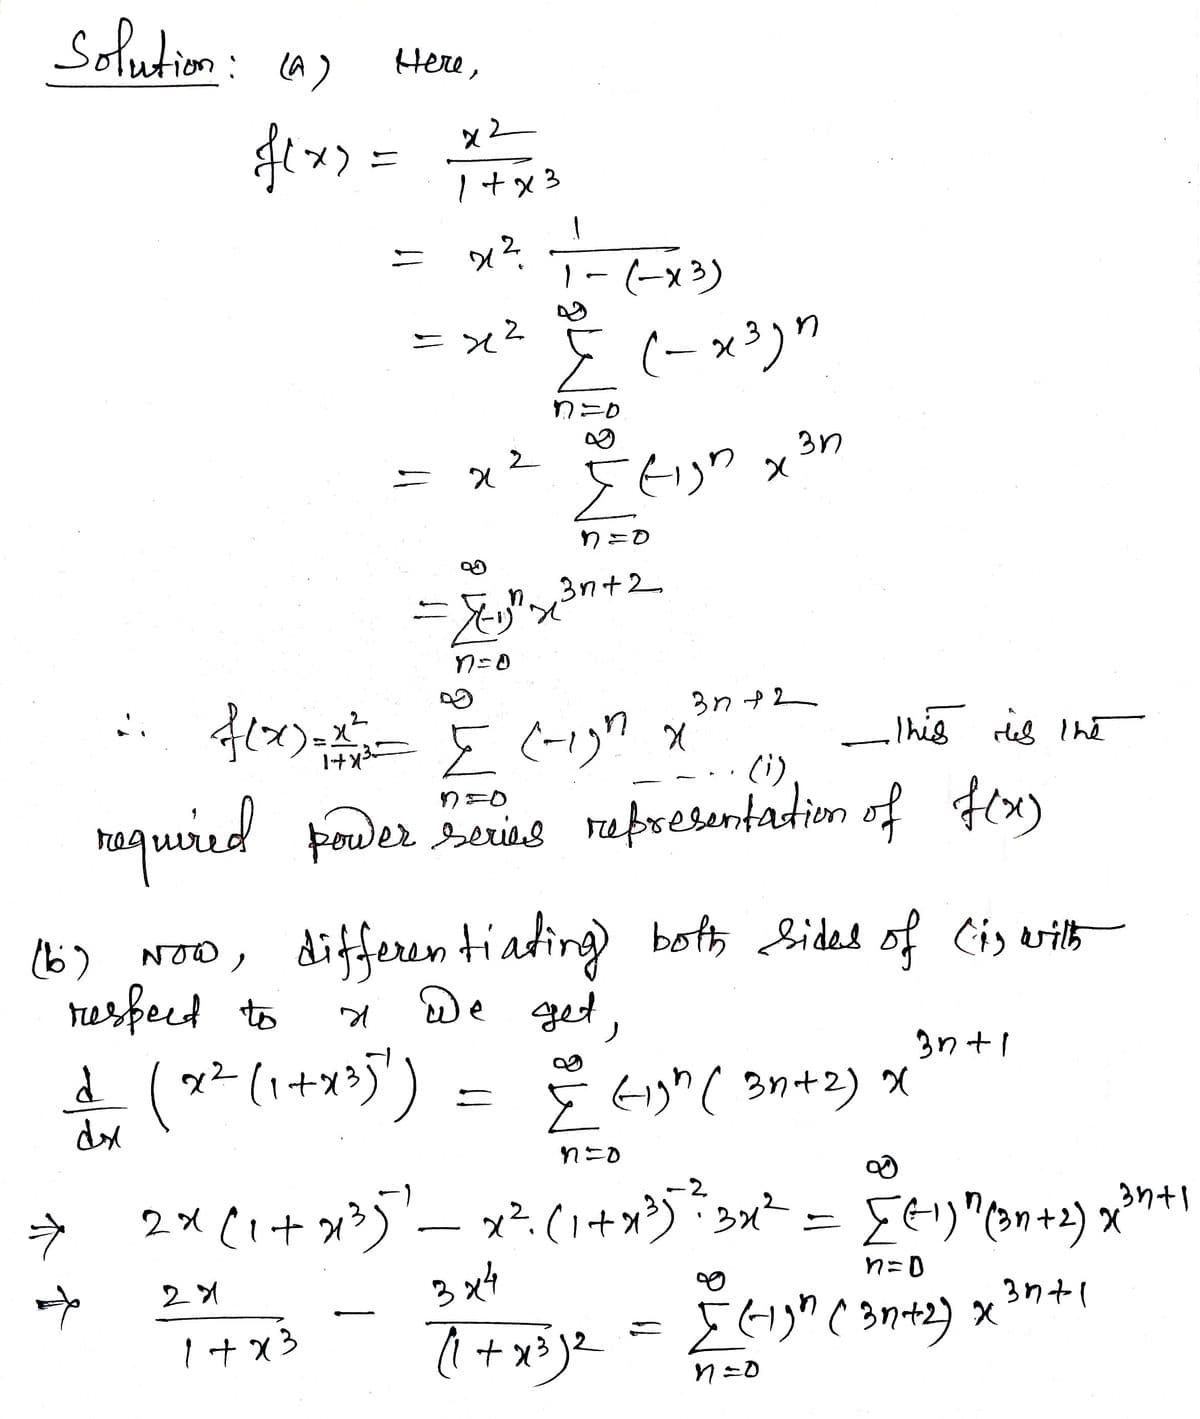 Solution: (a) Here,
f(x) = x²/(1+x³)
= x². 1/(1-(-x³))
= x² ∑_{n=0}^{∞} (-x³)^n
= x² ∑_{n=0}^{∞} (-1)^n x^{3n}
= ∑_{n=0}^{∞} (-1)^n x^{3n+2}
∴ f(x) = x²/(1+x³) = ∑_{n=0}^{∞} (-1)^n x^{3n+2} ---..(i) — This is the
required power series representation of f(x)
(b) Now, differentiating both sides of (i) with
respect to x we get,
d/dx (x²(1+x³)^{-1}) = ∑_{n=0}^{∞} (-1)^n (3n+2) x^{3n+1}
⇒ 2x(1+x³)^{-1} - x².(1+x³)^{-2}.3x² = ∑_{n=0}^{∞} (-1)^n (3n+2) x^{3n+1}
⇒ 2x/(1+x³) - 3x⁴/(1+x³)² = ∑_{n=0}^{∞} (-1)^n (3n+2) x^{3n+1}